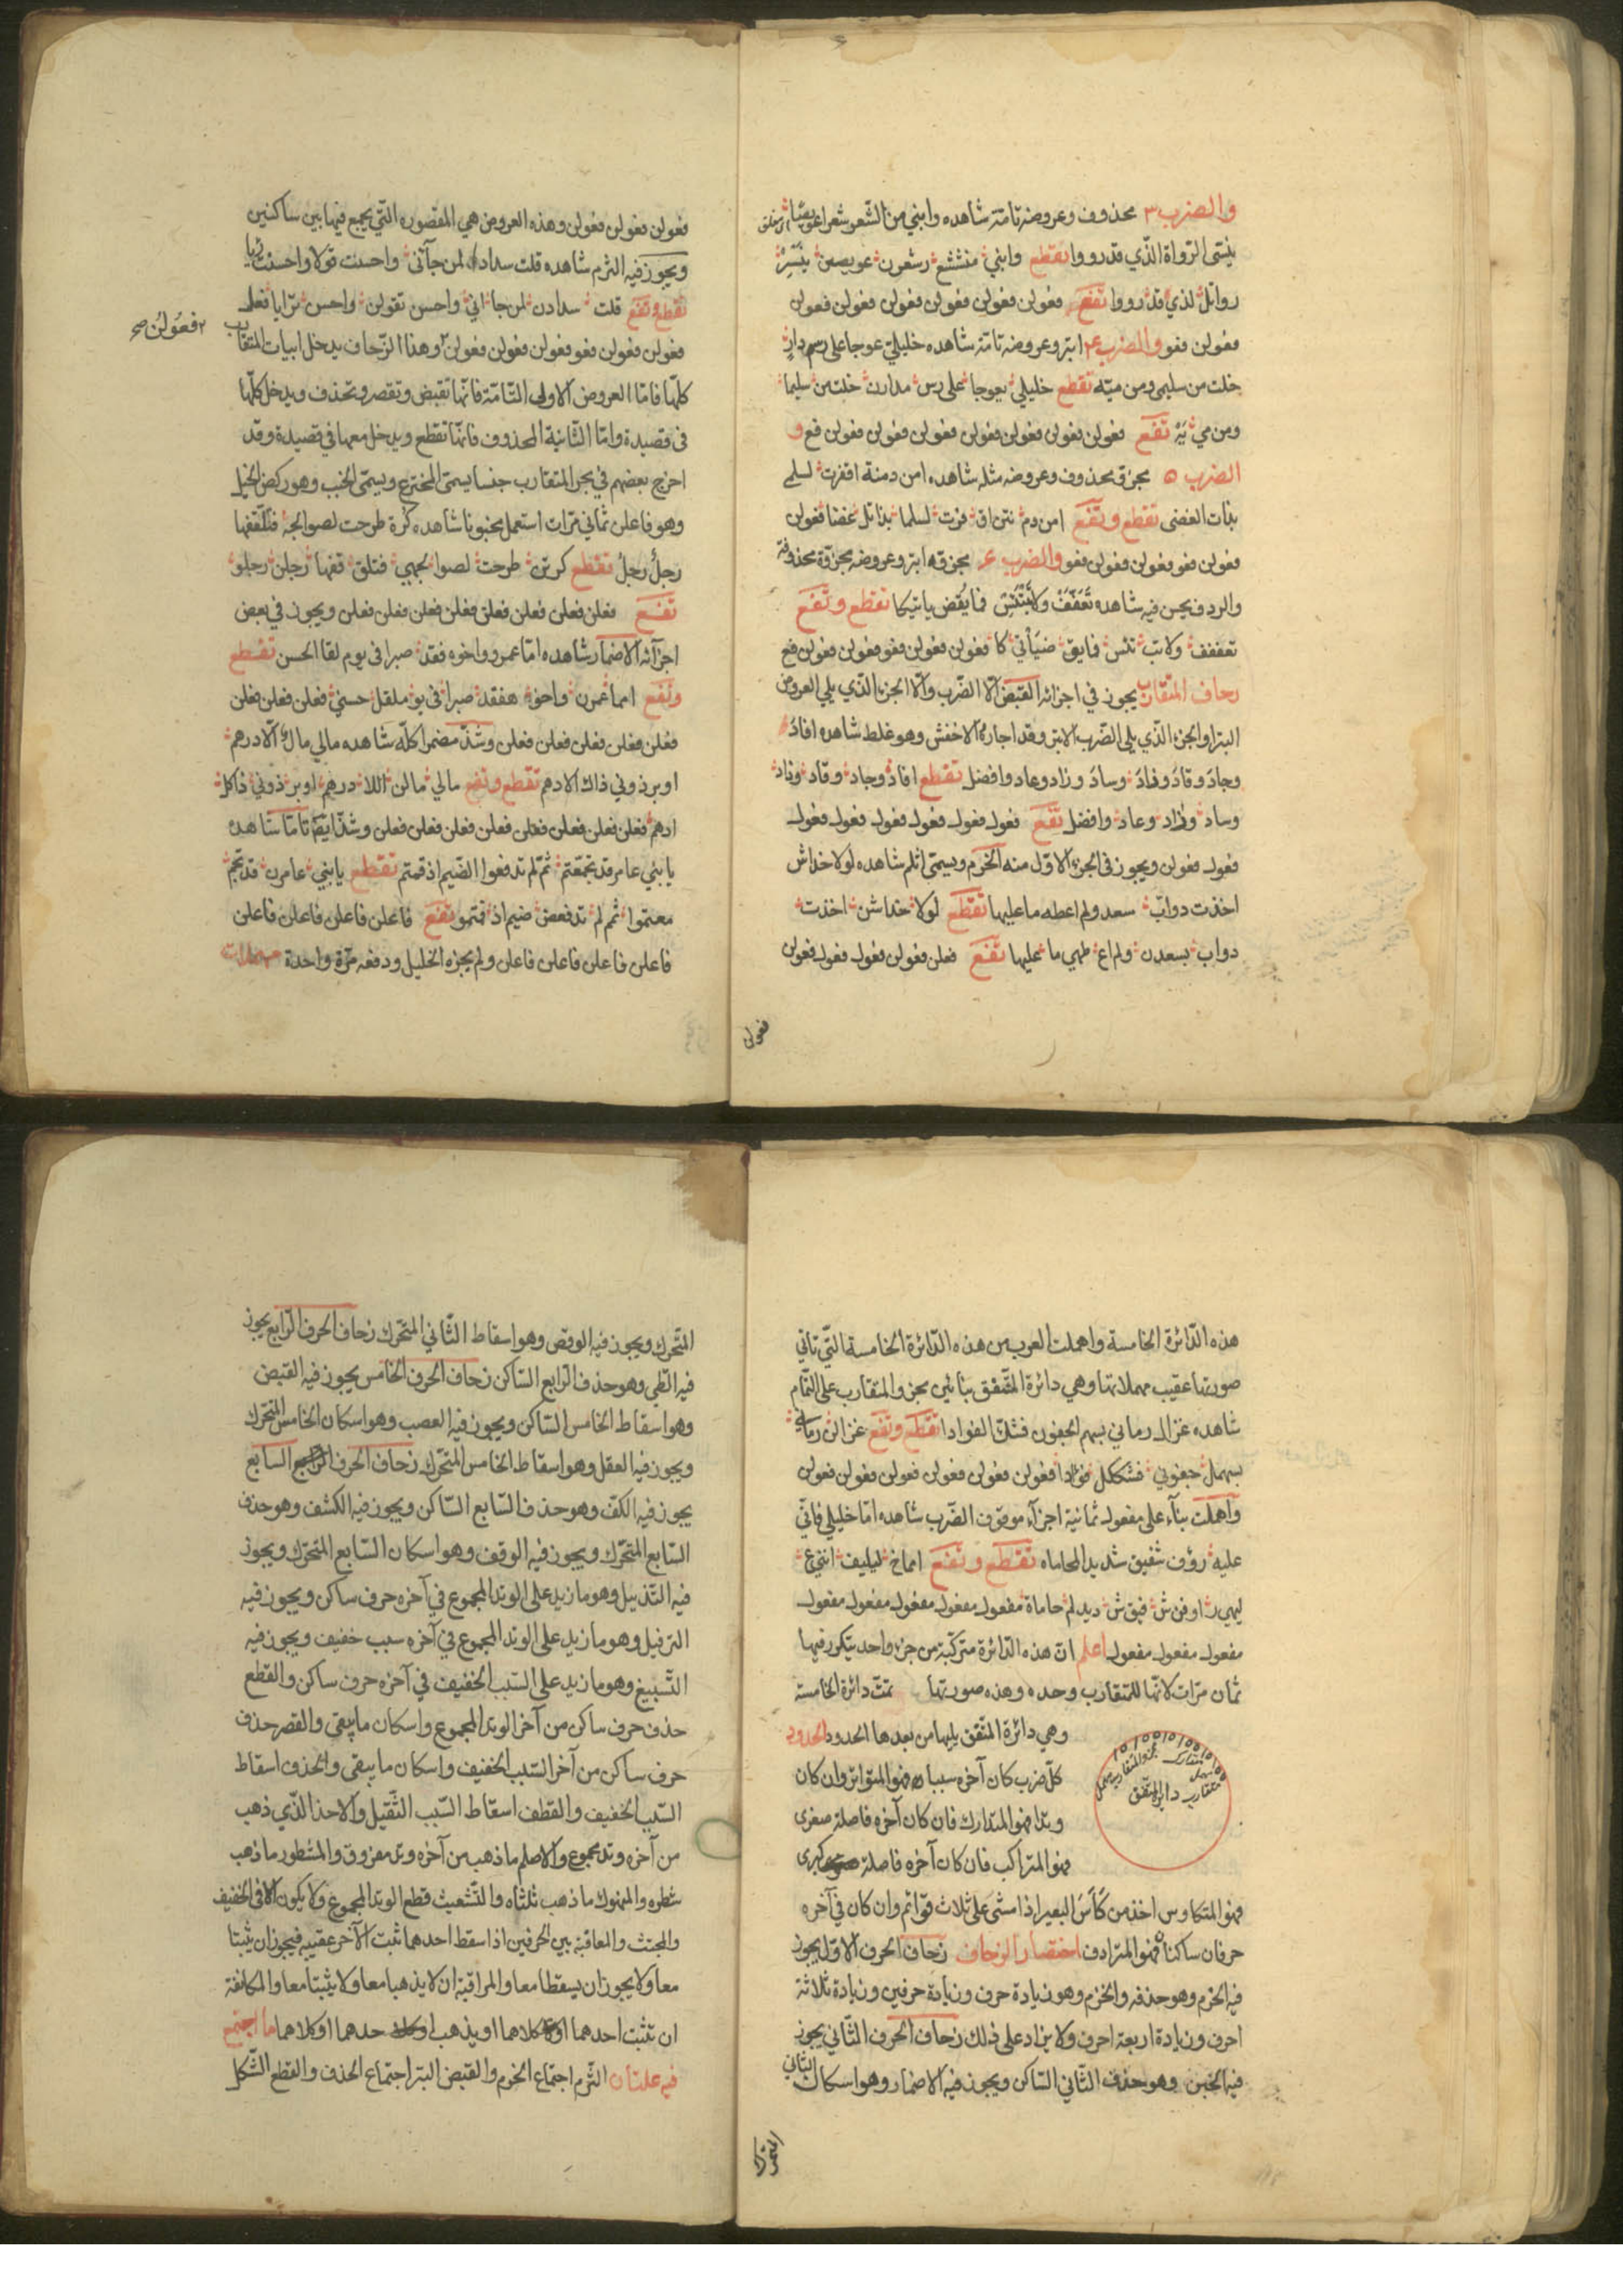 والضرب ٣ محذوف وعروضه تامّة شاهده وابني من الشّعر شعرا عويصًا
ينسّى الرّواة الّذي قد رووا تقطع وابني منششع رشعرن عويصن ينسّر
رواتل لذي قد رووا تفع فعولن فعولن فعولن فعولن فعولن فعولن
فعولن فعو والضرب ٤ ابتر وعروضه تامّة شاهده خليليّ عوجا على رسم دارٍ
خلت من سليمى ومن ميّه تقطع خليلي يعوجا على رس مدارن خلت من سليما
ومن مي يَهْ تفع فعولن فعولن فعولن فعولن فعولن فعولن فعولن فع و
الضرب ٥ مجزوّ محذوف وعروضه مثله شاهده امن دمنة اقفرت لسلمى
بذات الغضى تقطع وتفع امن دم نتن اق فرت لسلما بذاتل غضا فعولن
فعولن فعو فعولن فعولن فعو والضرب ٦ مجزوّه ابتر وعروضه مجزوّة محذوفة
والردف يحسن فيه شاهده تَعَفَّفْ ولا تَبْتَئِسْ فما يُقض ياتيكا تقطع وتفع
تعففف ولا تب تئس فايق ضيأتي كا فعولن فعولن فعو فعولن فعولن فع
زحاف المتقارب يجوز في اجزائه القبض الّا الضّرب والّا الجزء الّذي يلي العروض
البترا والجزء الّذي يلي الضّرب الابتر وقد اجازه الاخفش وهو غلط شاهده افادَ
وجادَ وقادَ وذادَ وسادَ وزاد وعاد وافضل تقطع افاد وجاد وقاد وذاد
وساد وزاد وعاد وافضل تفع فعول فعول فعول فعول فعول فعول
فعول فعولن ويجوز في الجزء الاوّل منه الخرم ويسمّى اثلم شاهده لولا خداش
اخذت دوابّ سعد ولم اعطه ما عليها تقطع لولا خداشن اخذت
دواب بسعدن ولم اع طهي ما عليها تفع فعلن فعولن فعول فعول فعولن
فعولن
فعولن فعولن فعولن وهذه العروض هي المقصوره الّتي يجمع فيها بين ساكنين
ويجوز فيه الثرم شاهده قلت سدادا لمن جآئني واحسنت قولا واحسنت رايا
تقطع وتفع قلت سدادن لمن جا اني واحسن تقولن واحسن ترايا فعل
فعولن فعولن فعو فعولن فعولن فعولن وهذا الزّحاف يدخل ابيات المتقارب
٢ فعولن صح
كلّها فامّا العروض الاولى التّامّة فانّها تقبض وتقصر وتحذف ويدخل كلّها
في قصيدة وامّا الثّانية المحذوف فانّها تقطع ويدخل معها في قصيدة وقد
اخرج بعضهم في بحر المتقارب جنسا يسمّى المخترع ويسمّى الخبب وهو ركض الخيل
وهو فاعلن ثماني مرّات استعمل مخبونا شاهده كُرة طرحت لصوالجة فتلّقفها
رجلٌ رجلُ تقطع كرتن طرحت لصوا لجهي فتلق قفها رجلن رجلو
تفع فعلن فعلن فعلن فعلن فعلن فعلن فعلن فعلن ويجوز في بعض
اجزآئه الاضمار شاهده امّا عمرو واخوه فقد صبرا في يوم لقا الحسن تقطع
وتفع امما عمرن واخو هفقد صبرا في يو ملقل حسني فعلن فعلن فعلن
فعلن فعلن فعلن فعلن فعلن وشذّ مضمرا كلّه شاهده مالي مالٌ الّا درهم
او برذوني ذاك الادهم تقطع وتفع مالي مالن اللا درهم او بر ذوني ذاكل
ادهم فعلن فعلن فعلن فعلن فعلن فعلن فعلن فعلن وشذّ ايضا تامّا شاهده
يا بني عامر قد تجمّعتم ثمّ لم تدفعوا الضّيم اذ قمتم تقطع يا بني عامرن قد تجم
معتموا ثم لم تدفعض ضيم اذ قمتمو تفع فاعلن فاعلن فاعلن فاعلن
فاعلن فاعلن فاعلن فاعلن ولم يجزه الخليل ودفعه مرّة واحدة مهملات
هذه الدّائرة الخامسة واهملت العرب من هذه الدّائرة الخامسة الّتي تاتي
صورتها عقيب مهملاتها وهي دائرة المتّفق بنائين مجزو المتقارب على التّمام
شاهده غزال رماني بسهم الجفون فشكّ الفوادا تقطع وتفع غزالن رماني
بسهمل جفوني فشككل فوادا فعولن فعولن فعولن فعولن فعولن فعولن
واهملت بنآء على مفعول ثمانية اجزآء موقوف الضّرب شاهده امّا خليلي فانّي
عليه رؤف شفيق شديد المحاماه تقطع وتفع امماخ ليليف انني ع
ليهي ر اوفن ش فيق ش ديدلم حاماة مفعول مفعول مفعول مفعول مفعول
مفعول مفعول مفعول اعلم انّ هذه الدّائرة متركّبة من جزء واحد يتكرر فيها
ثمان مرّات لانّها للمتقارب وحده وهذه صورتها تمتّ دائرة الخامسة
وهي دائرة المتّفق يليها من بعدها الحدود الحدود
كلّ ضرب كان آخره سببا فهو المتواتر وان كان
وتدا فهو المتدارك فان كان آخره فاصلة صغرى
فهو المتراكب فان كان آخره فاصلة كبرى
دايرة المتّفق
فهو المتكاوس اخذ من كَأسَ البعير اذا مشى على ثلاث قوائم وان كان في آخره
حرفان ساكنان فهو المترادف اختصار الزحاف زحاف الحرف الاوّل يجوز
فيه الخرم وهو حذفه والخزم وهو زيادة حرف وزيادة حرفين وزيادة ثلاثة
احرف وزيادة اربعة احرف ولا يزاد على ذلك زحاف الحرف الثّاني يجوز
فيه الخبن وهو حذف الثّاني السّاكن ويجوز فيه الاضمار وهو اسكان الثاني
المتحرك
المتّحرك ويجوز فيه الوقص وهو اسقاط الثّاني المتحّرك زحاف الحرف الرّابع يجوز
فيه الطّي وهو حذف الرّابع السّاكن زحاف الحرف الخامس يجوز فيه القبض
وهو اسقاط الخامس السّاكن ويجوز فيه العصب وهو اسكان الخامس المتحّرك
ويجوز فيه العقل وهو اسقاط الخامس المتحّرك زحاف الحرف السّابع
يجوز فيه الكفّ وهو حذف السّابع السّاكن ويجوز فيه الكشف وهو حذف
السّابع المتحّرك ويجوز فيه الوقف وهو اسكان السّابع المتحّرك ويجوز
فيه التّذييل وهو ما زيد على الوتد المجموع في آخره حرف ساكن ويجوز فيه
الترفيل وهو ما زيد على الوتد المجموع في آخره سبب خفيف ويجوز فيه
التّسبيغ وهو ما زيد على السّبب الخفيف في آخره حرف ساكن والقطع
حذف حرف ساكن من آخر الوتد المجموع واسكان ما يبقى والقصر حذف
حرف ساكن من آخر السّبب الخفيف واسكان ما يبقى والحذف اسقاط
السّبب الخفيف والقطف اسقاط السّبب الثّقيل والاحذ الّذي ذهب
من آخره وتد مجموع والاصلم ما ذهب من آخره وتد مفروق والمشطور ما ذهب
شطره والمنهوك ما ذهب ثلثاه والتّشعيث قطع الوتد المجموع ولا يكون الا في الخفيف
والمجتث والمعاقبة بين الحرفين اذا سقط احدهما ثبت الآخر عقيبه فيجوز ان يثبتا
معا ولا يجوز ان يسقطا معا والمراقبة ان لا يذهبا معا ولا يثبتا معا والمكانفة
ان تثبت احدهما او كلاهما او يذهب احدهما او كلاهما ما اجتمع
فيه علتان الثّرم اجتماع الخرم والقبض البتر اجتماع الحذف والقطع الشّكل